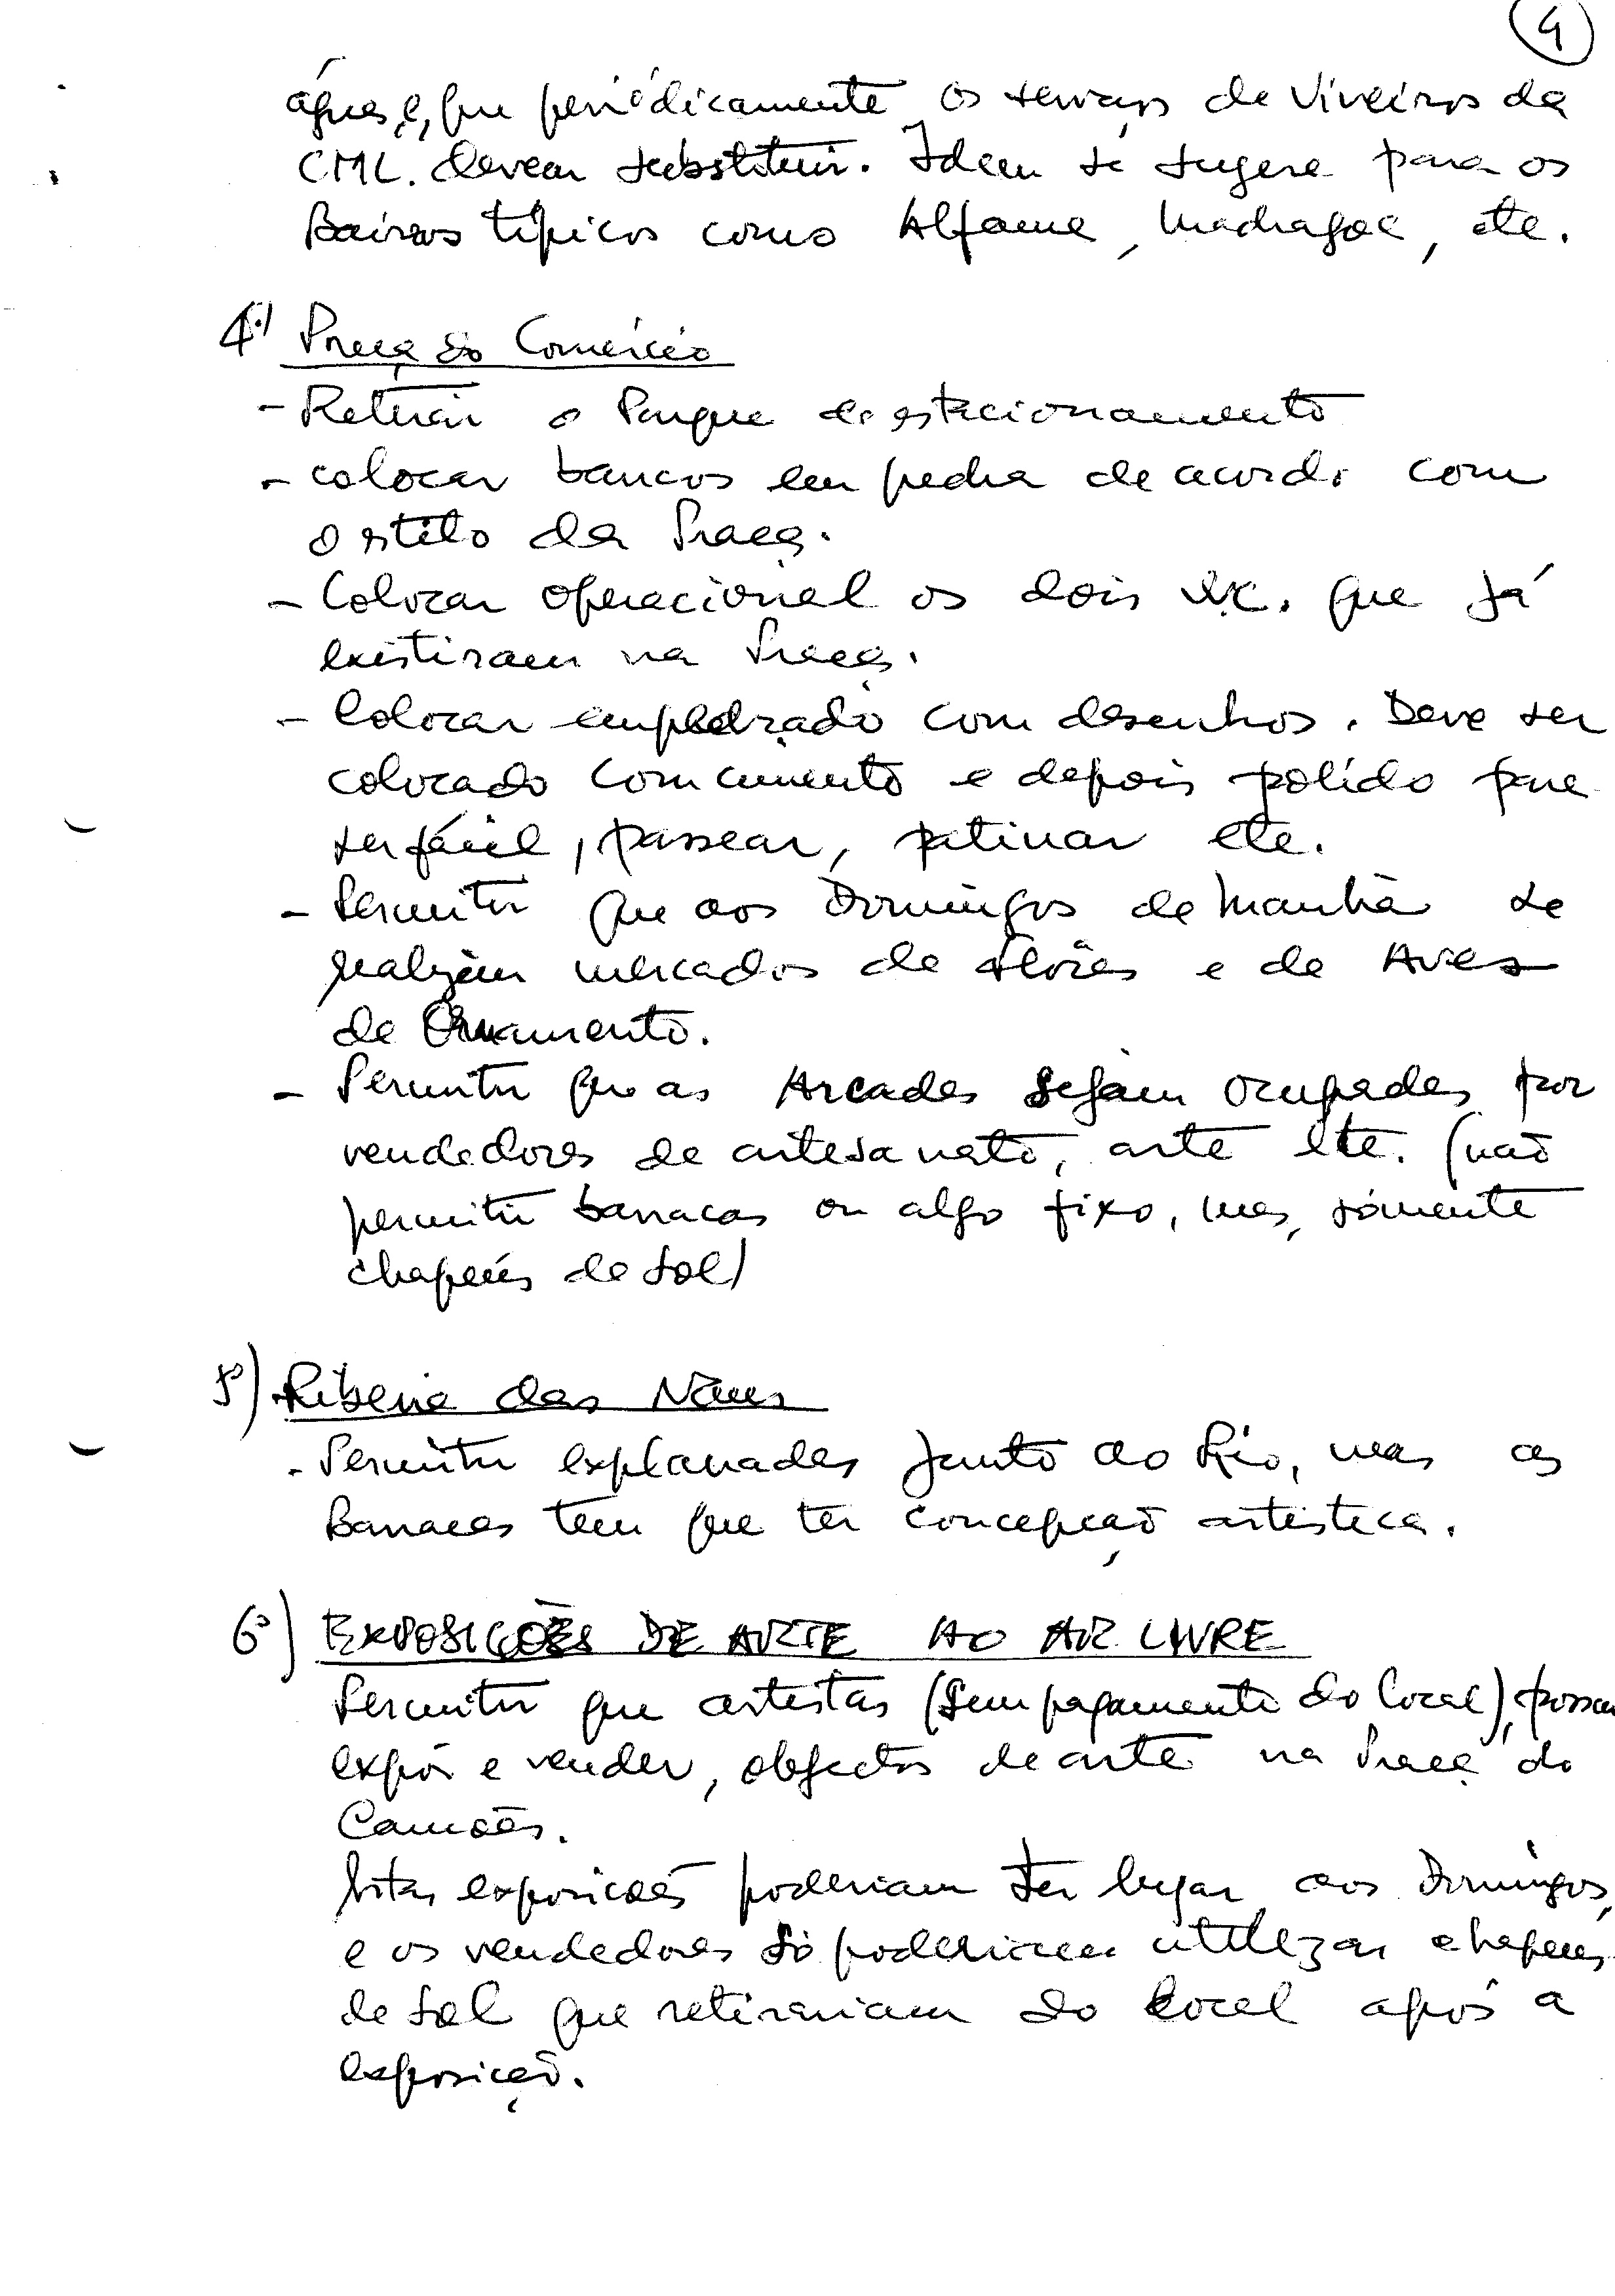 4
água, e, que periódicamente os serviços de Viveiros da
CML. devem substituir. Idem se sugere para os
Bairros típicos como Alfama, Madragoa, etc.
4º) Praça do Comércio
- Retirar o Parque de estacionamento
- colocar bancos em pedra de acordo com
o estilo da Praça.
- Colocar operacional os dois W.C. que já
existiram na Praça.
- Colocar empedrado com desenhos. Deve ser
colocado com cimento e depois polido para
ser fácil, passear, patinar etc.
- Permitir que aos Domingos de manhã se
realizem mercados de flôres e de Aves
de Ornamento.
- Permitir que as Arcadas sejam ocupadas por
vendedores de artesanato, arte etc. (não
permitir barracas ou algo fixo, mas, sómente
chapeús de sol)
5º) Ribeira das Naus
- Permitir explanadas junto ao Rio, mas as
Barracas tem que ter concepção artistica.
6º) EXPOSIÇÕES DE ARTE AO AR LIVRE
Permitir que artistas (sem pagamento do local), possam
expôr e vender, objectos de arte na Praça do
Camões.
Estas exposições poderiam ter lugar aos Domingos,
e os vendedores só poderiam utilizar chapeus
de sol que retirariam do local após a
exposição.